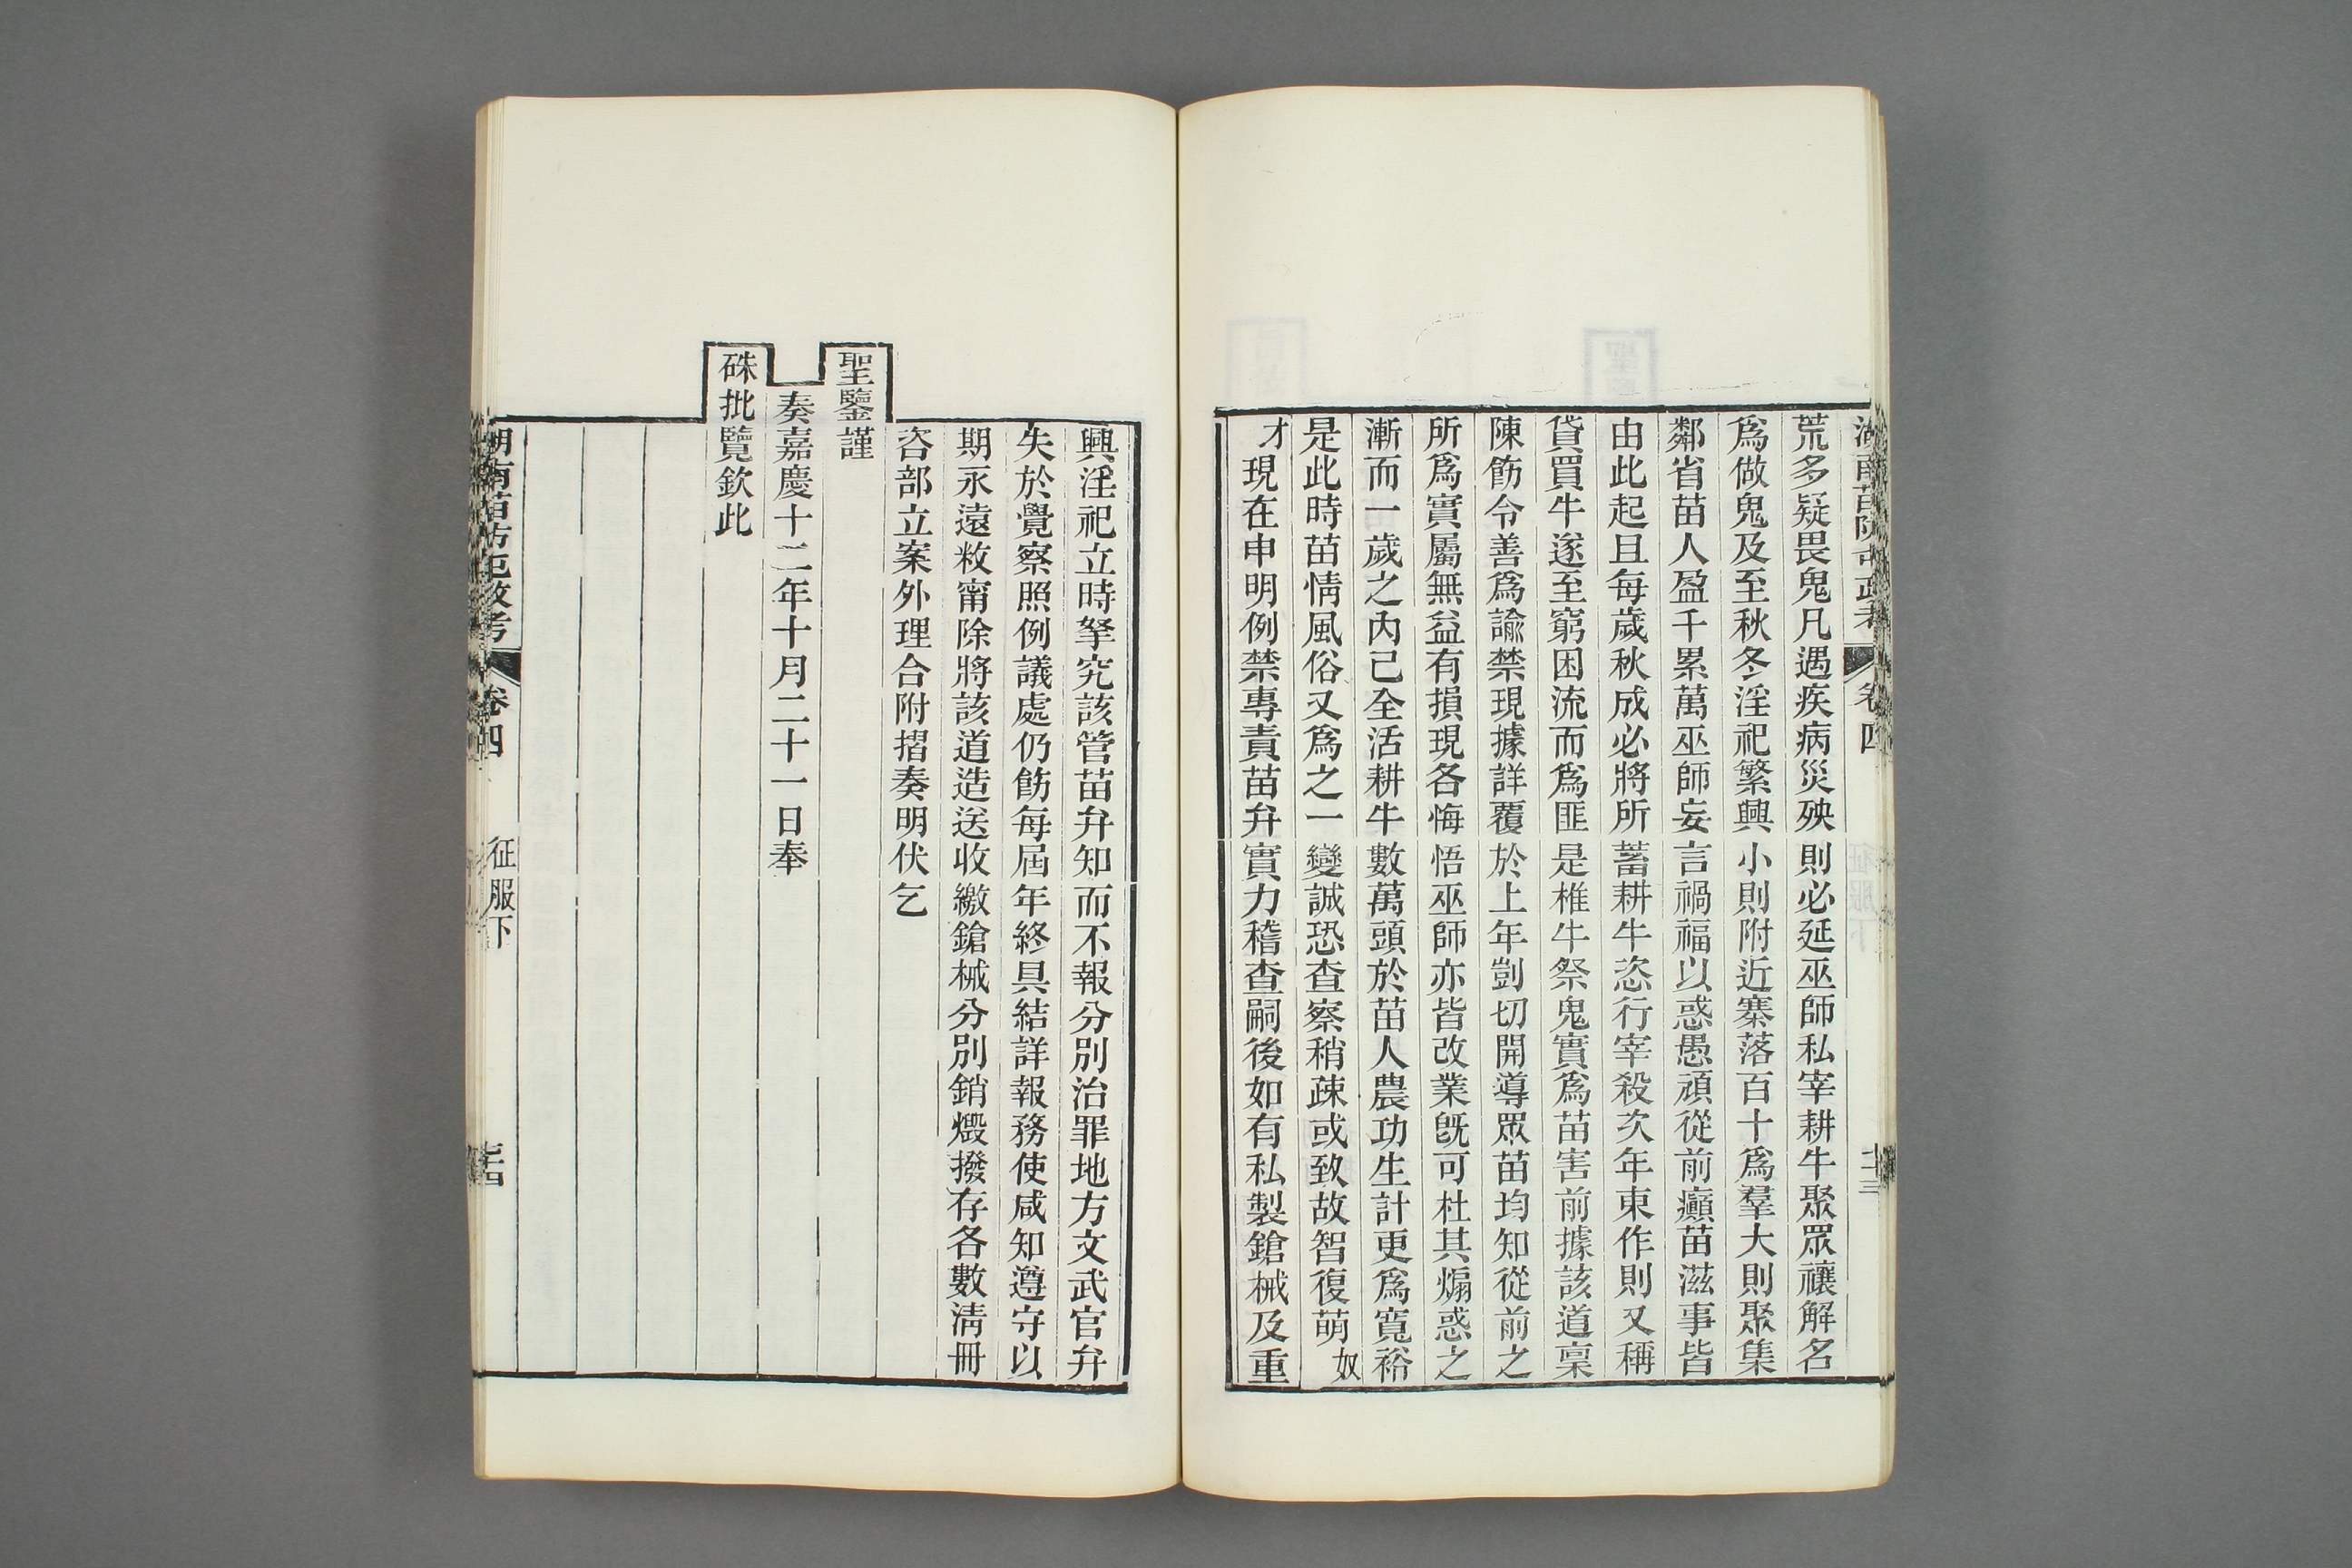 荒多疑畏鬼凡遇疾病災殃則必延巫師私宰耕牛聚眾禳解名
爲做鬼及至秋冬淫祀繁興小則附近寨落百十爲羣大則聚集
鄰省苗人盈千累萬巫師妄言禍福以惑愚頑從前癲苗滋事皆
由此起且每歲秋成必將所蓄耕牛恣行宰殺次年東作則又稱
貸買牛遂至窮困流而爲匪是椎牛祭鬼實爲苗害前據該道稟
陳飭令善爲諭禁現據詳覆於上年剴切開導眾苗均知從前之
所爲實屬無益有損現各悔悟巫師亦皆改業旣可杜其煽惑之
漸而一歲之內己全活耕牛數萬頭於苗人農功生計更爲寬裕
是此時苗情風俗又爲之一變誠恐查察稍疎或致故智復萌奴
才現在申明例禁專責苗弁實力稽查嗣後如有私製鎗械及重
興淫祀立時拏究該管苗弁知而不報分別治罪地方文武官弁
失於覺察照例議處仍飭每屆年終具結詳報務使咸知遵守以
期永遠敉甯除將該道造送收繳鎗械分別銷燬撥存各數淸冊
咨部立案外理合附摺奏明伏乞
聖鑒謹
奏嘉慶十二年十月二十一日奉
硃批覽欽此
湖南苗防屯政考
卷四
征服下